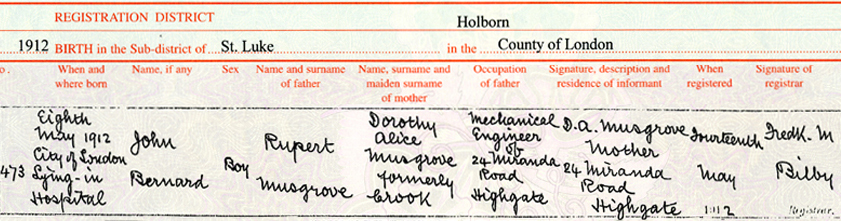 REGISTRATION DISTRICT Holborn
1912 BIRTH in the Sub-district of St. Luke in the County of London
o. When and where born Name, if any Sex Name and surname of father Name, surname and maiden surname of mother Occupation of father Signature, description and residence of informant When registered Signature of registrar
473
Eighth
May 1912
City of London
Lying-in
Hospital
John
Bernard
Boy
Rupert
Musgrove
Dorothy
Alice
Musgrove
formerly
Crook
Mechanical
Engineer
of
24 Miranda
Road
Highgate
D.A. Musgrove
Mother
24 Miranda
Road
Highgate
Fourteenth
May
1912
Fredk. M
Bilby
Registrar.